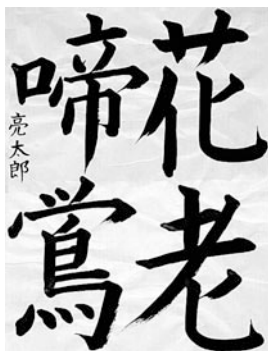 花老
啼鴬
亮太郎